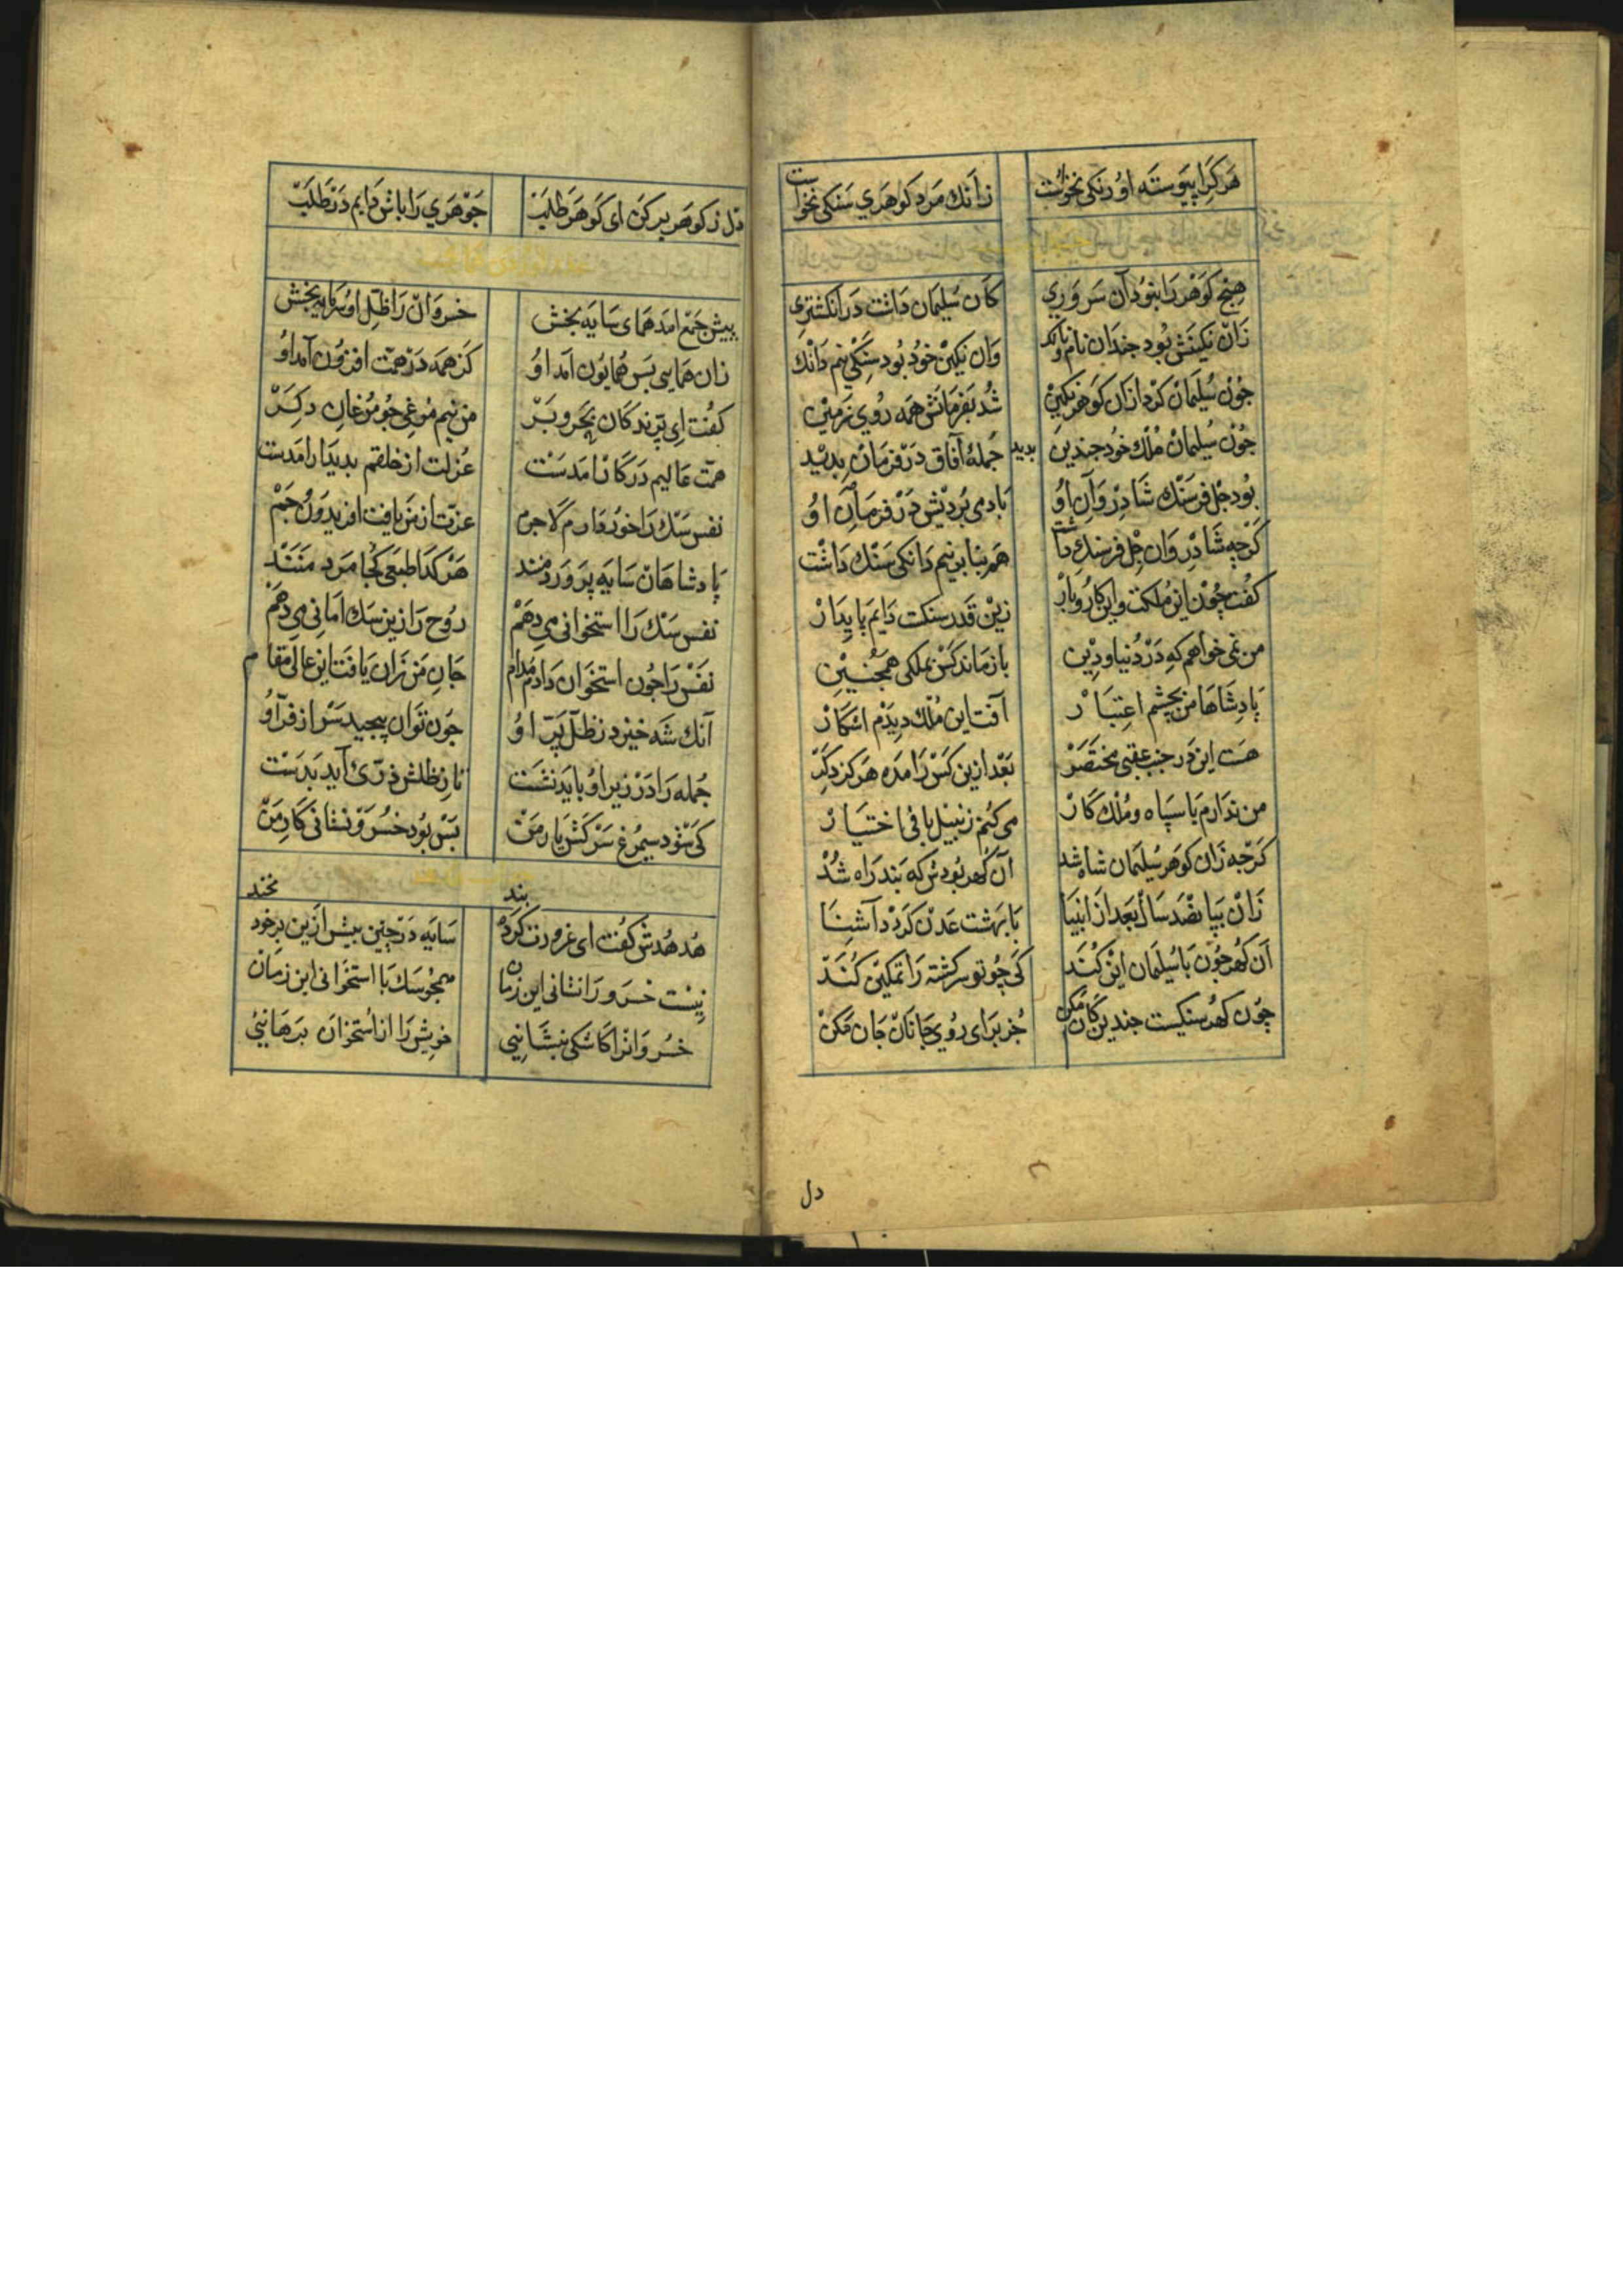 هر کرا پیوسته او رنکی نخواست زانك مرد کوهری سنکی نخواست
هیج کوهر را بنود آن سروری کان سلیمان داشت در انکشتری
زان نکینش بود جندان نام و بانك وان نکین خود بود سنکی نیم دانك
جون سلیمان کرد ازان کوهر نکین شد بفرمانش همه روی زمین
جون سلیمان ملك خود جندین بدید جمله آفاق در فرمان بدید
بود جل فرسنك شادروان او باد می بردیش در فرمان او
کرجه شادروان جل فرسنك داشت هم بنا بر نیم دانکی سنك داشت
کفت چون این مملکت واین کار و بار زین قدر سنکت دایم پایدار
من نمی خواهم که در دنیا و دین باز ماند کس بملکی همجنین
پادشاها من بچشم اعتبار آفت این ملك دیدم اشکار
هست این در جنب عقبی مختصر بعد ازین کس را مده هرکز دکر
من ندارم با سپاه و ملك کار می کنم زنبیل بافی اختیار
کرجه زان کوهر سلیمان شاه شد آن کهر بودش که بند راه شد
زان بپانصد سال بعد از انبیا با بهشت عدن کردد آشنا
آن کهر جون با سلیمان این کند کی چو تو سرکشته را تمکین کند
چون کهر سنکیست جندین کان مکن جز برای روی جانان جان مکن
دل
دل ز کوهر بر کن ای کوهر طلب جوهری را باش دایم در طلب
پیش جمع امد همای سایه بخش خسروان را ظل او سرمایه بخش
زان همایی بس همایون آمد او کز همه در همت افزون آمد او
کفت ای پرندکان بحر و بر من نیم مرغی جو مرغان دکر
همت عالیم در کار امدست عزلت از خلقم بدیدار امدست
نفس سك را خوار دارم لاجرم عزت از من یافت افریدون جم
پادشاهان سایه پرورد منند هر کدا طبعی کجا مرد منند
نفس سك را استخوانی می دهم روح را زین سك امانی می دهم
نفس را جون استخوان دادم مدام جان من زان یافت این عالی مقام
آنك شه خیزد ز ظل پر او جون توان پیجید سر از فر او
جمله را در زیر او باید نشست تا ز ظلش ذره آید بدست
کی شود سیمرغ سرکش یار من بس بود خسرو نشانی کار من
هدهدش کفت ای غرورت کرده بند سایه در چین بیش ازین بر خود نخند
نیست خسرو را نشانی این زمان همجو سك با استخوانی این زمان
خسروانرا کاشکی ننشانیی خویش را از استخوان برهانیی